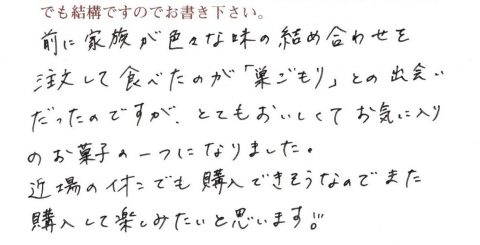 でも結構ですのでお書き下さい。
前に家族が色々な味の結め合わせを
注文して食べたのが「巣ごもり」との出会い
だったのですが、とてもおいしくてお気に入り
のお菓子の一つになりました。
近場のイオンでも購入できそうなのでまた
購入して楽しみたいと思います!!